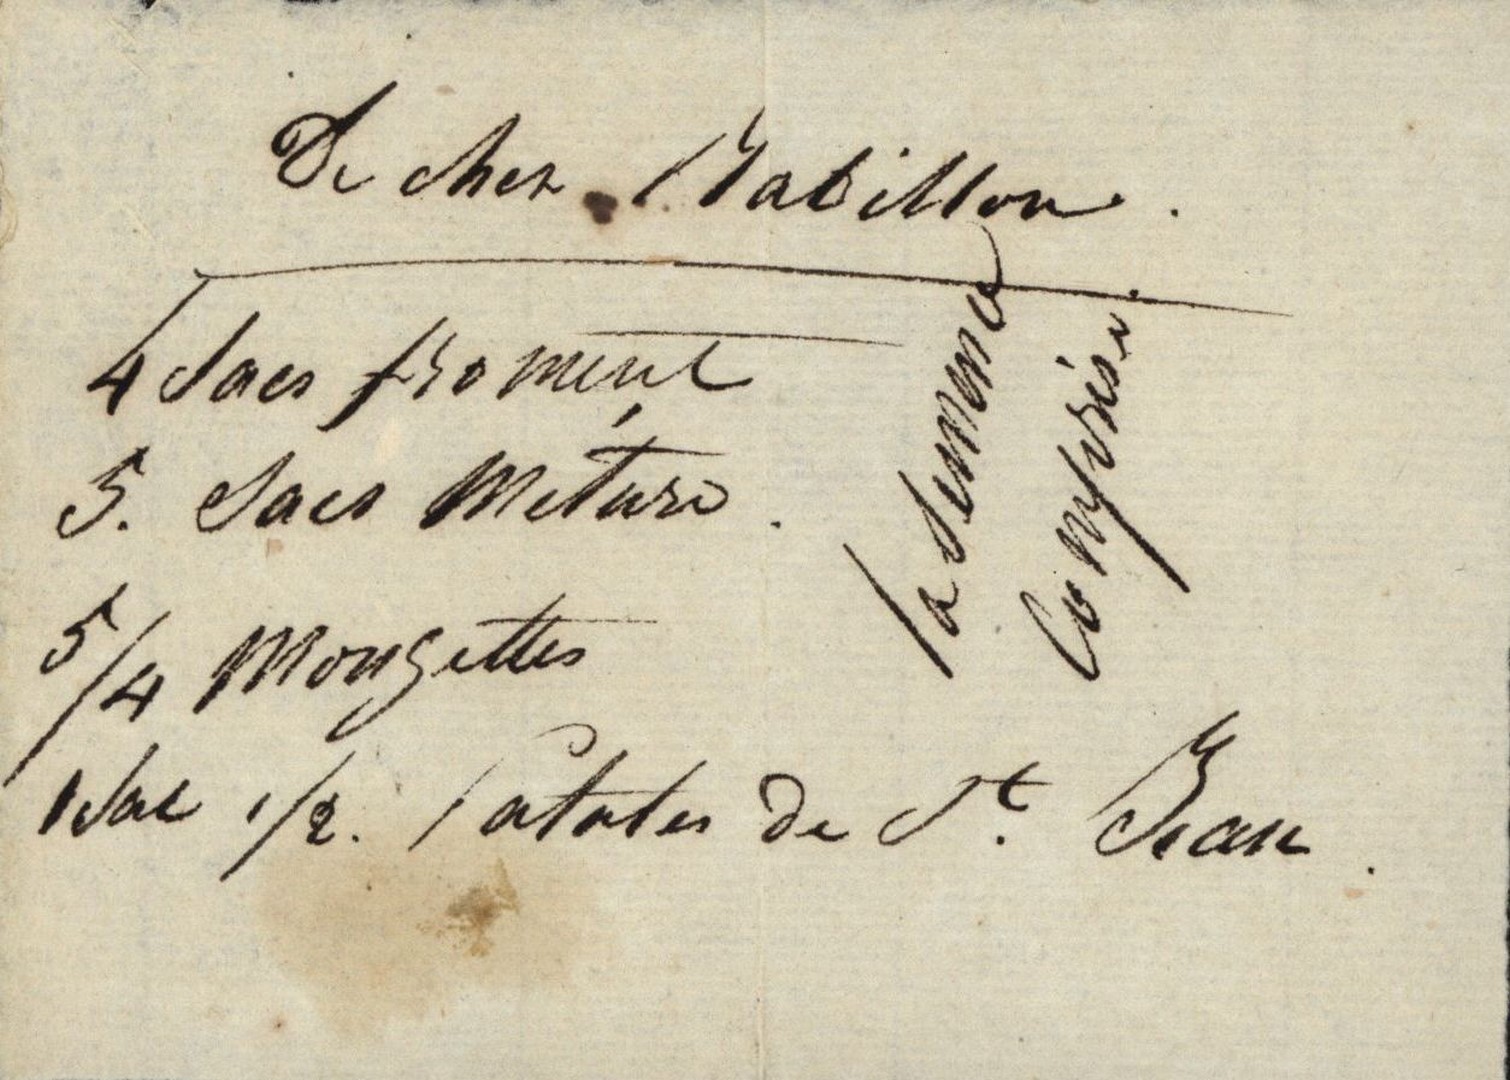 De chez Batillon.
4 Sacs froment
5. Sacs Meture.
5/4 Mongettes
1 Sac 1/2. Patates de St. Jean.
la semence
Comprise